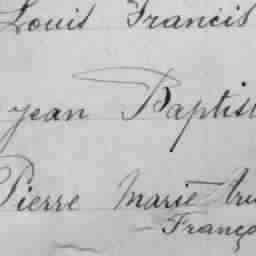 Louis Francis
jean Baptis
Pierre Marie
Franço